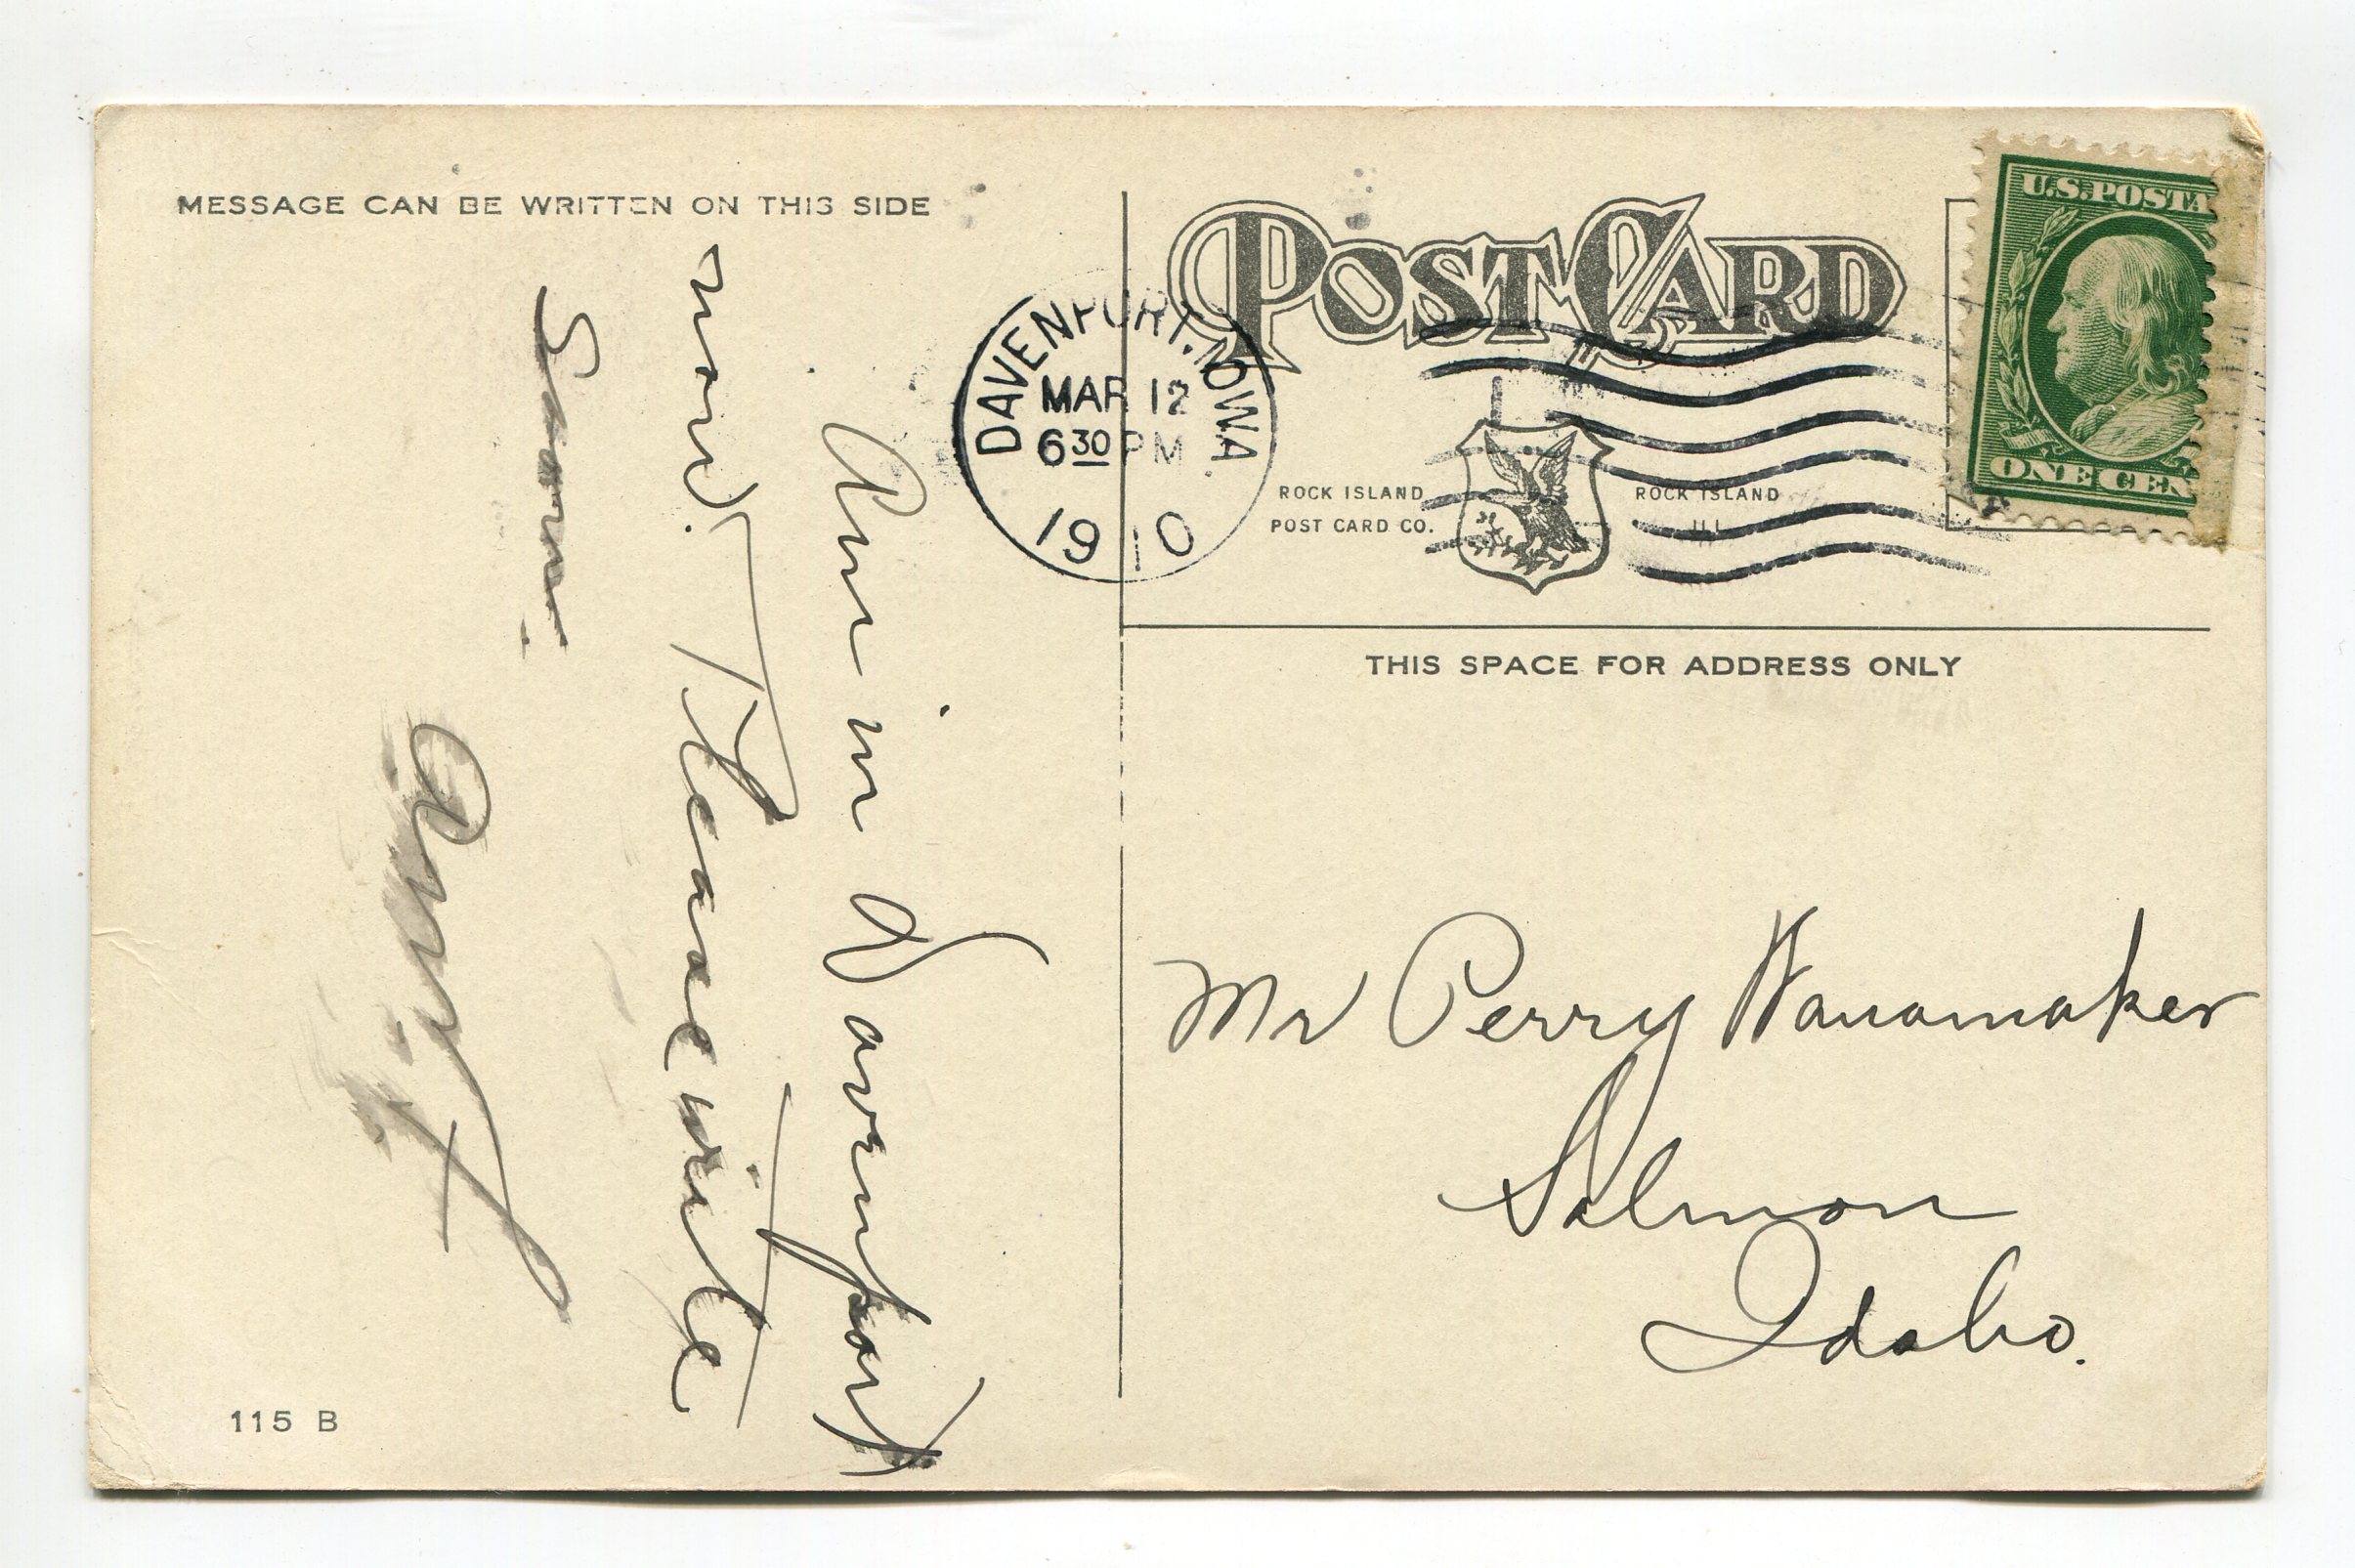 MESSAGE CAN BE WRITTEN ON THIS SIDE
Am in Davenport
now. Please write
Soon.
Aunt
115 B
POST CARD
DAVENPORT, IOWA.
MAR 12
6 30 PM
1910
ROCK ISLAND
POST CARD CO.
ROCK ISLAND
ILL
U.S. POSTA
ONE CEN
THIS SPACE FOR ADDRESS ONLY
Mr Perry Wanamaker
Salmon
Idaho.